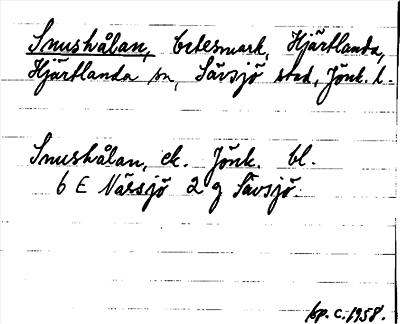 Snushålan, betesmark, Hjärtlanda,
Hjärtlanda sn, Sävsjö stad, Jönk. l.
Snushålan, ek. Jönk. bl.
6 E Nässjö 2 g Sävsjö.
hp. C. 1958.